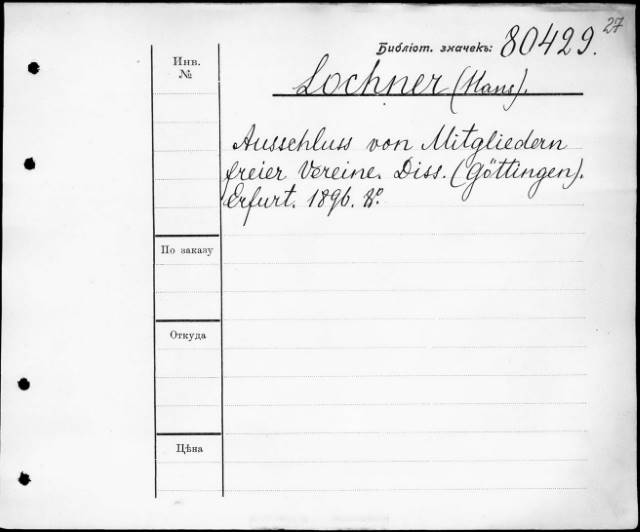 27
Библіот. значекъ: 80429.
Инв.
№
Lochner (Hans).
Ausschluss von Mitgliedern
freier Vereine. Diss. (Göttingen).
Erfurt. 1896. 8°.
По заказу
Откуда
Цѣна